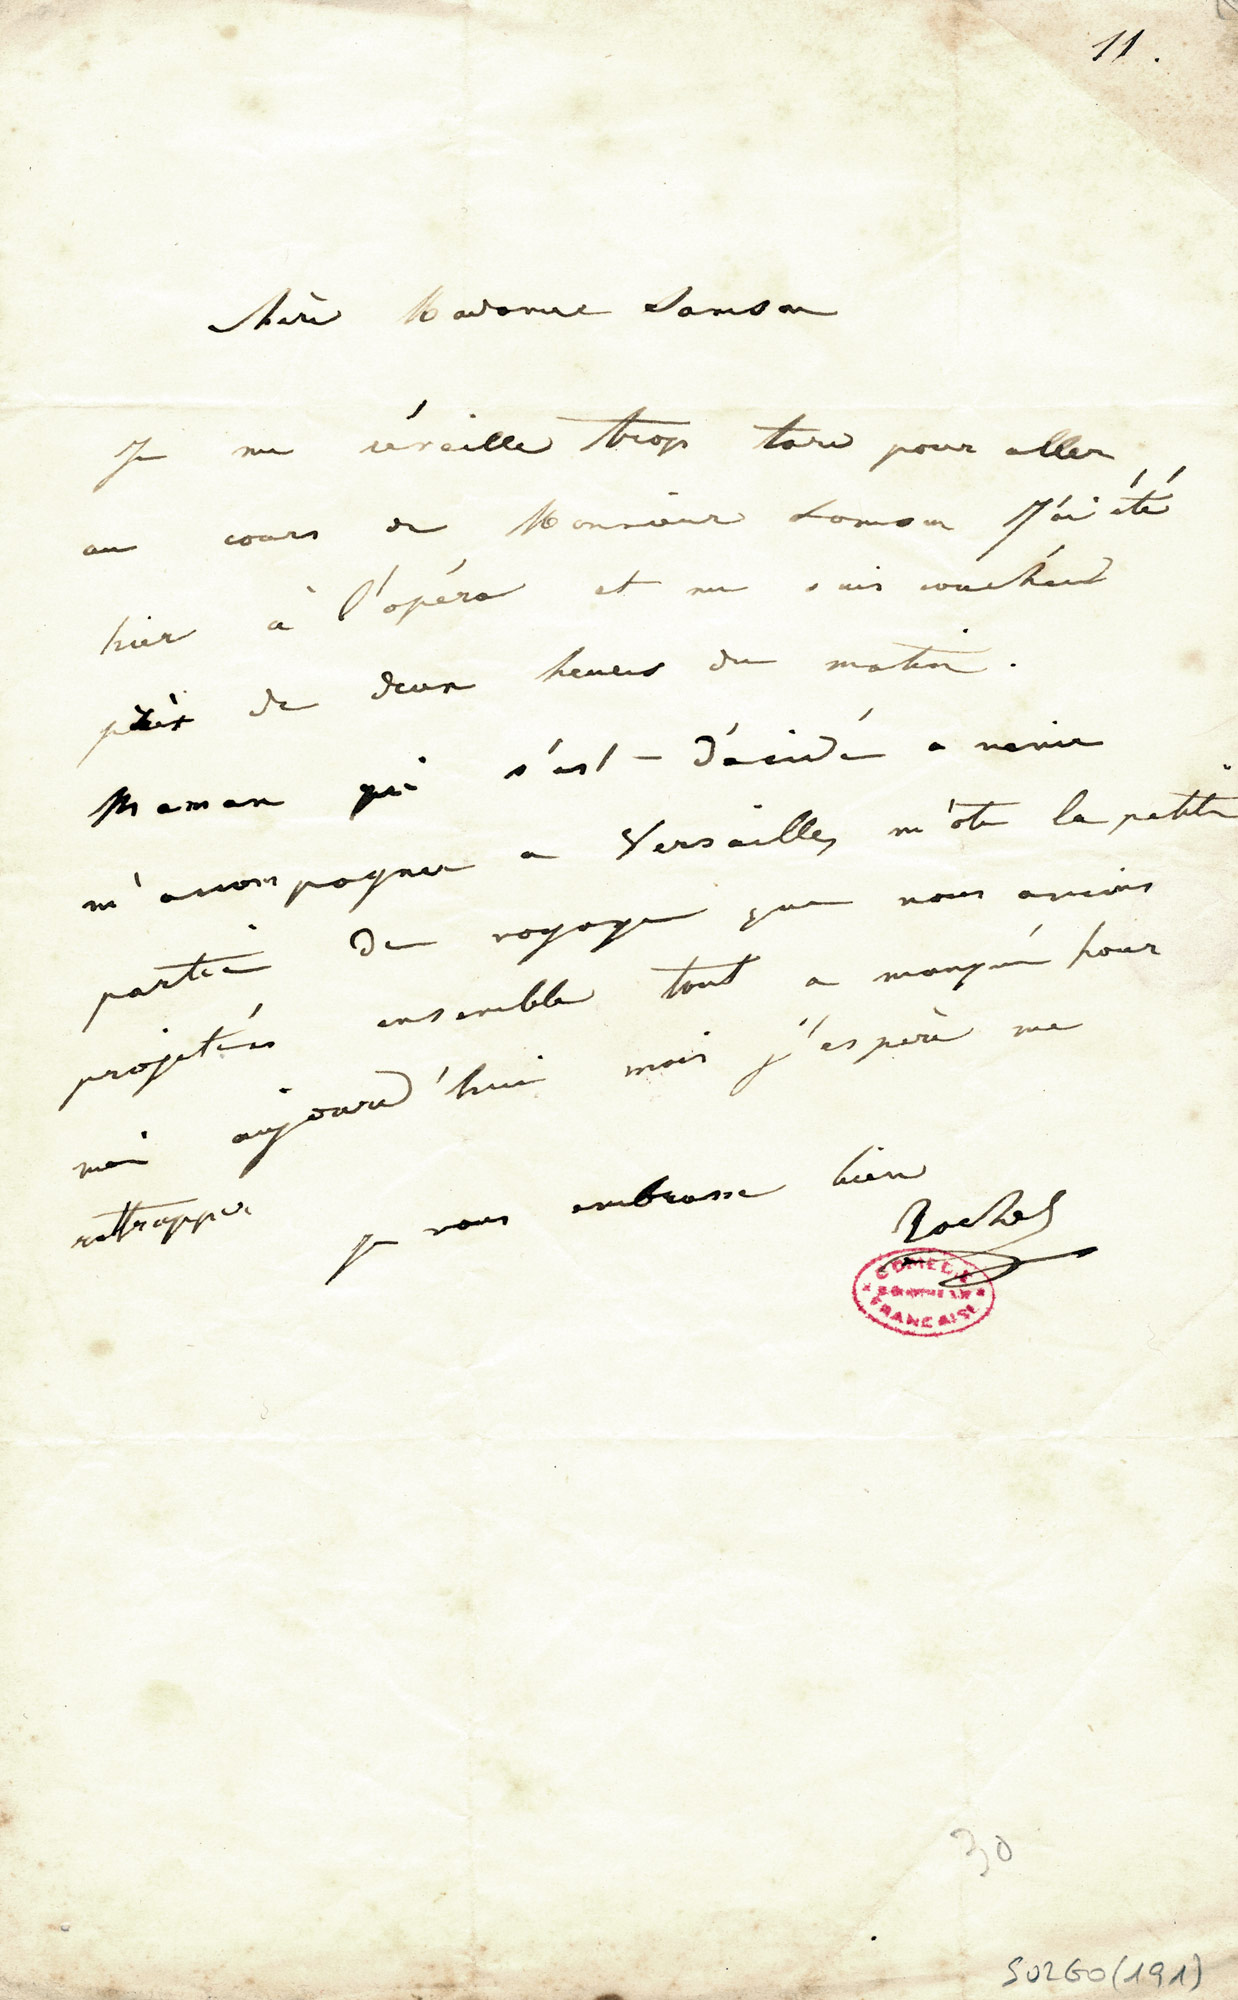 11.
chère Madame Samson
Je me réveille trop tard pour aller
au cours de Monsieur Samson J'ai été
hier à l'opéra et me suis couchée
près de deux heures du matin.
Maman qui s'est-décidé a venir
m'accompagner a Versailles m'ote la petite
partie de voyage que nous avions
projetés ensemble tout a manqué pour
moi aujourd'hui mais j'espère me
rattrapper je vous embrasse bien
Rachel
COMÉDIE
FRANÇAISE
30
(191)